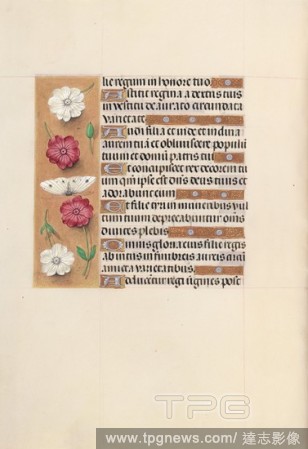 lie regum in honore tuo.
Astitit regina a dextris tuis
in vestitu deaurato circundata
varietate
Audi filia et vide et inclina
aurem tuam et obliviscere populū
tuum et domū patris tui
Et concupiscet rex decorem tu
um qm̄ ipse est dn̄s deus tuus et
adorabunt eum
Et filie tyri in muneribus vul
tum tuum deprecabuntur om̄s
divites plebis
Omnis gloria eius filie regis
ab intus in fimbreis aureis circū
amicta varietatibus
Adducentur regi virgines post
TPG
www.tpgnews.com/ 達志影像